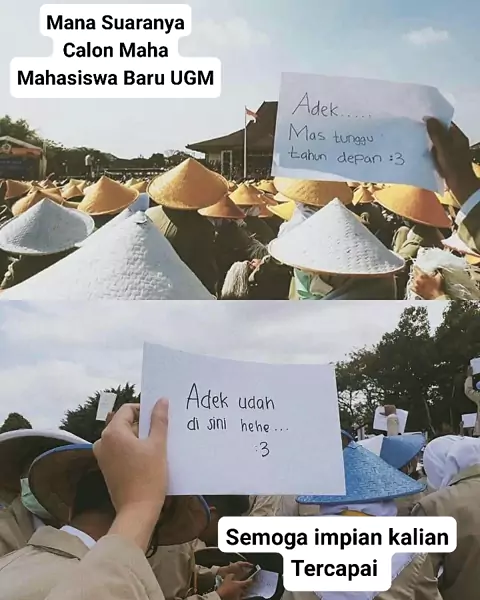 Mana Suaranya
Calon Maha
Mahasiswa Baru UGM
Adek.....
Mas tunggu
tahun depan :3
Adek udah
di sini hehe...
:3
Semoga impian kalian
Tercapai